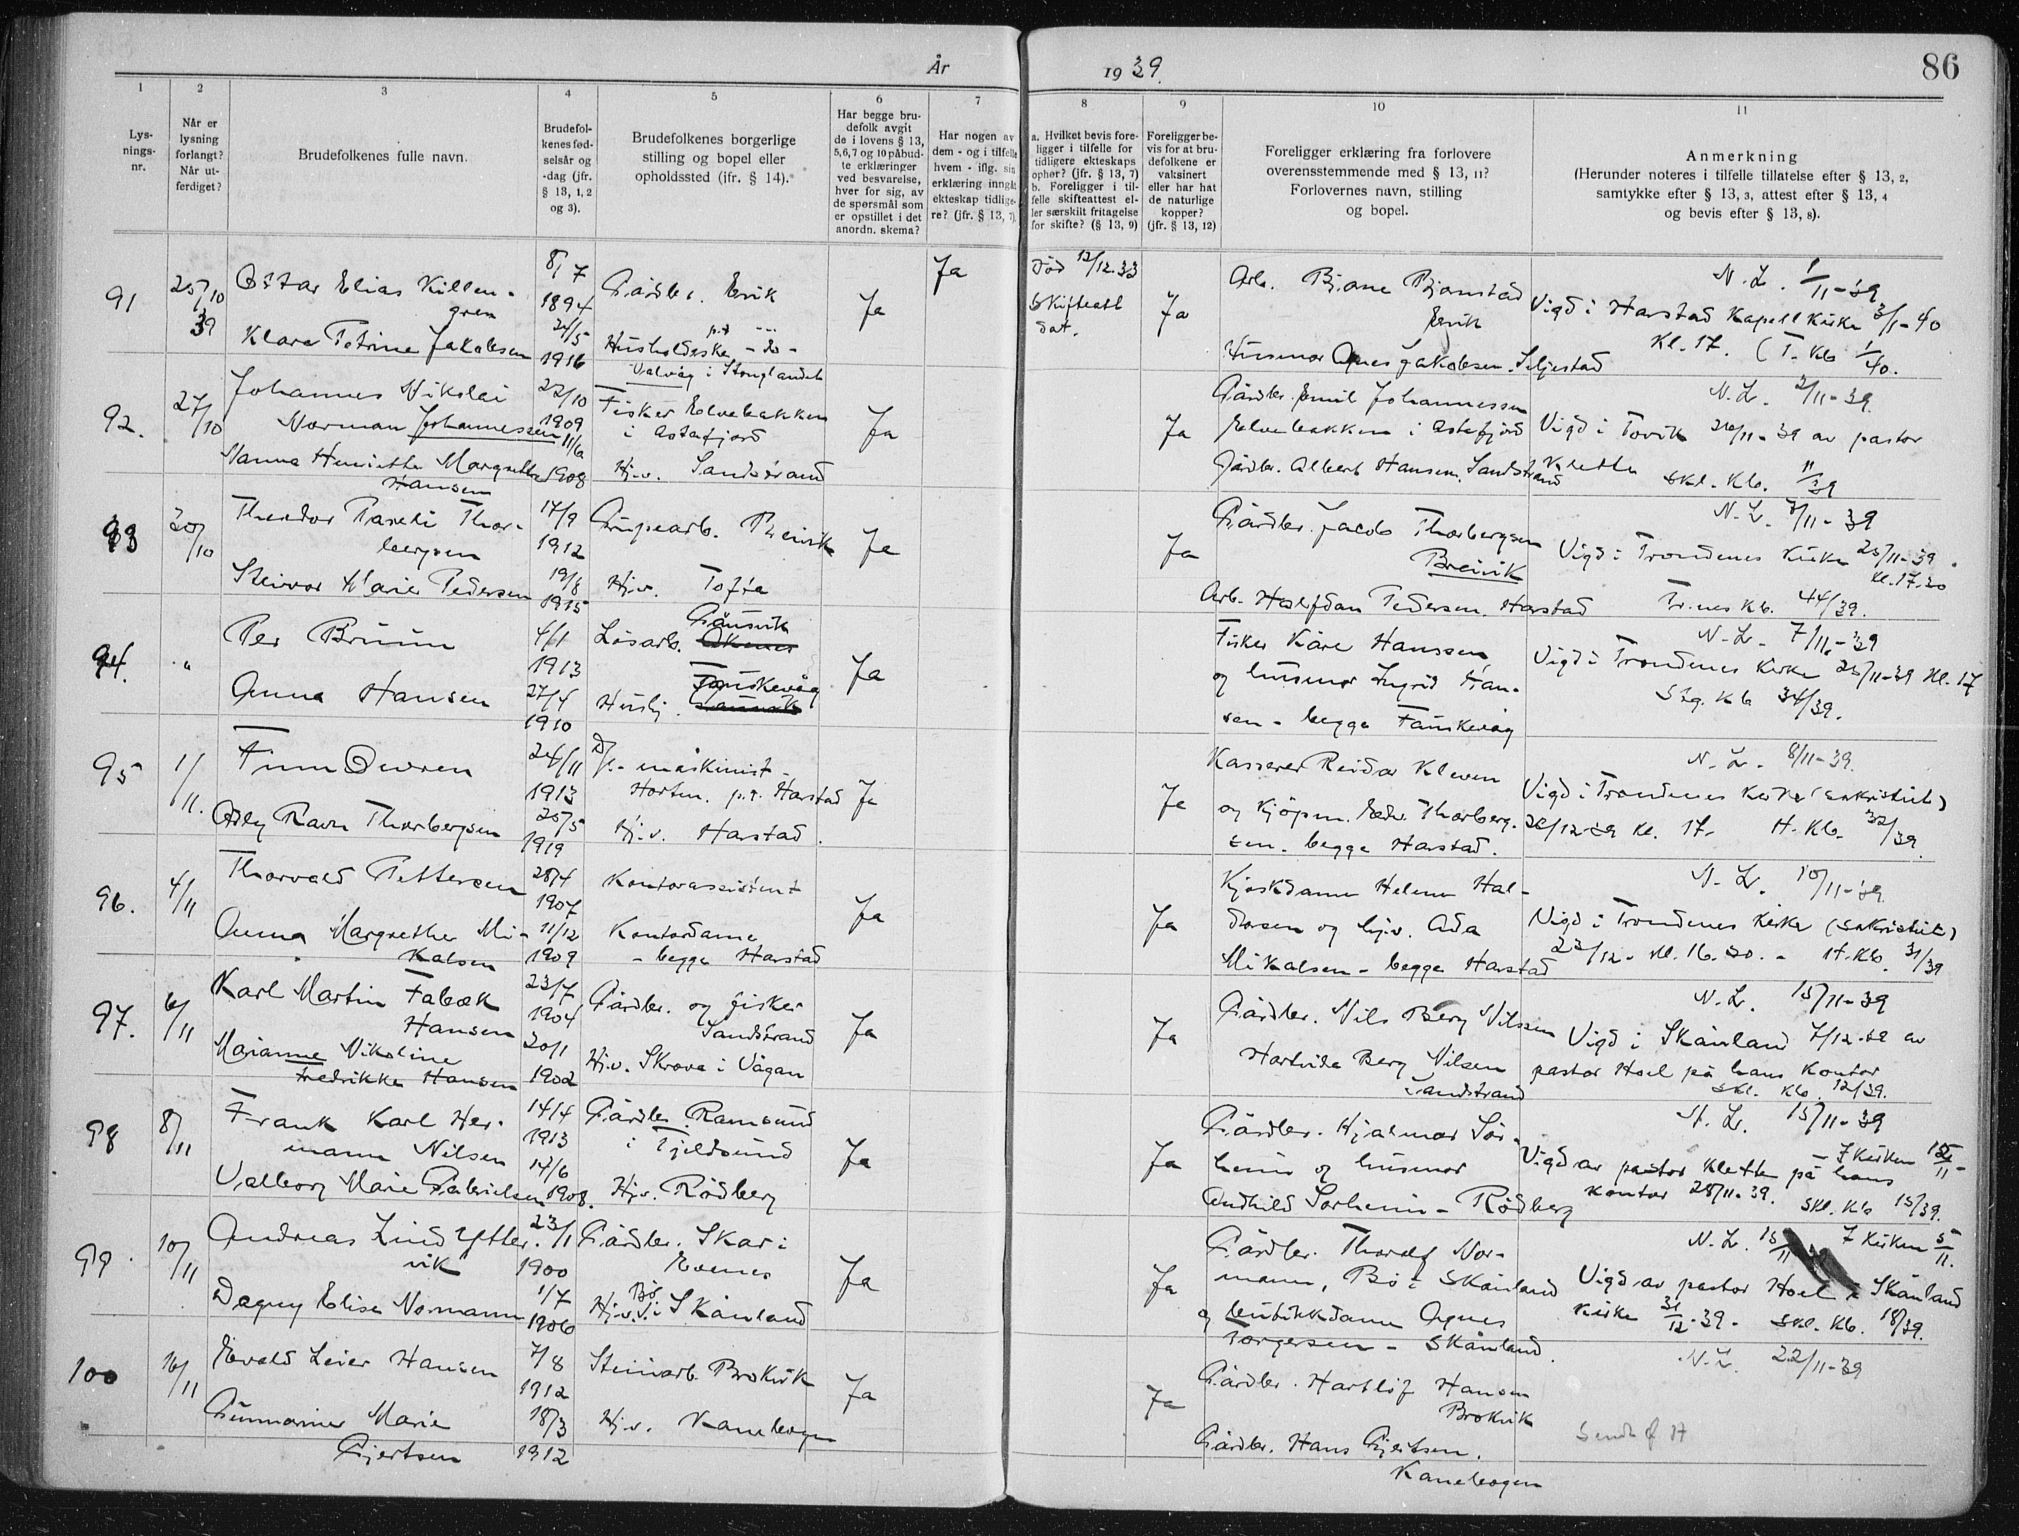 År 1939.
86
1
2
3
4
5
6
7
8
9
10
11
Lys-
nings-
nr.
Når er
lysning
forlangt?
Når ut-
ferdiget?
Brudefolkenes fulle navn.
Brudefol-
kenes fød-
selsår og
-dag (jfr.
§ 13, 1, 2
og 3).
Brudefolkenes borgerlige
stilling og bopel eller
opholdssted (ifr. § 14).
Har begge bru-
defolk avgit
de i lovens § 13,
5,6,7 og 10 påbud-
te erklæringer
ved besvarelse,
hver for sig, av
de spørsmål som
er opstillet i det
anordn. skema?
Har nogen av
dem - og i tilfelle
hvem - iflg. sin
erklæring inngåt
ekteskap tidlige-
re? (jfr. § 13, 7)
a. Hvilket bevis fore-
ligger i tilfelle for
tidligere ekteskaps
ophør? (jfr. § 13, 7)
b. Foreligger i til-
felle skifteattest el-
ler særskilt fritagelse
for skifte? (§ 13, 9)
Foreligger be-
vis for at bru-
defolkene er
vaksinert
eller har hat
de naturlige
kopper?
(jfr. § 13, 12)
Foreligger erklæring fra forlovere
overensstemmende med § 13, 11?
Forlovernes navn, stilling
og bopel.
Anmerkning
(Herunder noteres i tilfelle tillatelse efter § 13, 2,
samtykke efter § 13, 3, attest efter § 13, 4
og bevis efter § 13, 8).
91
25/10
39
Elias Killen-
gren
Klara Petrine Jakobsen
8/7
1894
24/5
1916
Gårdbr. Ervik
p.t. ---
Husholderske - do -
Valvåg i Stonglandet
Ja
Ja
Død 12/12.33
Skifteatt
dat.
Ja
Arb. Bjarne Bjørnstad
Ervik
Husmor Agnes Jakobsen. Seljestad
N. L. 1/11-39
Vigd i Harstad Kapell kirke 3/1-40
Kl. 17. (T. Kb 1/40.
92.
27/10
Johannes Nikolai
Norman Johannessen
Nanna Henriette Margrethe
Hansen
22/10
1909
11/6
1908
Fisker Elvebakken
i Astafjord
Hj.v. Sandstrand
Ja
Ja
Gårdbr. Emil Johannessen
Elvebakken i Astafjord
Gårdbr. Albert Hansen, Sandstrand
N. L. 2/11-39.
Vigd i Tovik 26/11-39 av pastor
Kletta Skl. Kb. 11/39
93
30/10
Theodor Thor-
bergsen
Steinvor Marie Pedersen
17/9
1912
19/8
1915
Grupearb. Breivik
Hj.v. Toftø
Ja
Ja
Gårdbr. Jacob Thorbergsen
Breivik
Arb. Halfdan Pedersen. Harstad
N. L. 7/11-39
Vigd i Trondenes Kirke 25/11-39.
kl. 17.30
Tr.nes Kb. 44/39.
94.
"
Per Bruun
Anna Hansen
4/1
1913
27/4
1910
Gausvik
Løsarb.
Fauskevåg
Huslj.
Ja
Fisker Kåre Hanssen
og husmor Ingrid Han-
sen - begge Fauskevåg
N. L. 7/11-39
Vigd i Trondenes kirke 25/11-39 Kl. 17
Kb 34/39.
95
1/11.
Finn
Adly Ravn Thorbergsen
24/11
1913
25/5
1919
maskinist
Horten. p.t. Harstad
Hj.v. Harstad.
Ja
Ja
Kasserer Reidar Kleven
og Kjøpm. Edv. Thorberg-
sen. begge Harstad.
N. L. 8/11-39.
Vigd i Trondenes kirke (sakristiet)
26/12-39 Kl. 17. H. Kb. 32/39.
96.
4/11
Thorvald Pettersen
Anna Margrethe Mi-
kalsen
28/4
1907
11/12
1909
Kontorassistent
Kontordame
- begge Harstad
Ja
Ja
Kjoskdame Helene Hal-
dorsen og hj.v. Ada
Mikalsen - begge Harstad
N. L. 10/11-39.
Vigd i Trondenes kirke (sakristiet)
23/12. kl. 16.30. - H. Kb. 31/39
97.
6/11
Karl Martin Falck
Hansen
Marianne Nikoline
Fredrikke Hansen
23/7
1904
20/1
1902
Gårdbr. og fisker
Sandstrand
Hj.v. Skrova i Vågan
Ja
Ja
Gårdbr. Nils Berg Nilsen
Hartvik Berg Nilsen
Sandstrand
N. L. 15/11-39
Vigd i Skånland 7/12-39 av
pastor Hoel på hans kontor
Skl. Kb. 12/39.
98
8/11
Frank Karl Her-
mann Nilsen
Valborg Marie Gabrielsen
14/4
1913
14/6
1908.
Gårdbr. Ramsund
i Tjeldsund
Hj.v. Rødberg
Ja
Ja
Gårdbr. Hjalmar Sør-
heim og husmor
Andhild Sørheim - Rødberg
N. L. 15/11-39
Vigd av pastor Kletta på hans
kontor 28/11-39. Skl. Kb 15/39.
99.
10/11
Andreas Lind Ytter-
vik
Dagny Elise Normann
23/1
1900
1/7
1906
Gårdbr. Skar i
Evenes
Bø
Hj.v. i Skånland
Ja
Ja
Gårdbr. Thoralf Nor-
mann, Bø i Skånland
og butikkdame Agnes
Torgersen - Skånland.
N. L. 15/11
Kirken 5/11.
Vigd av pastor Hoel i Skånland
kirke 31/12-39. Skl. Kb. 18/39.
100
16/11
Evald Leier Hansen
Gunnarine Marie
Gjertsen
7/8
1912
18/3
1912
Steinarb. Brokvik
Hj.v. Kanebogen
Ja
Ja
Gårdbr. Hartløf Hansen
Brokvik
Gårdbr. Hans Gjertsen.
Kanebogen
N. L. 22/11-39